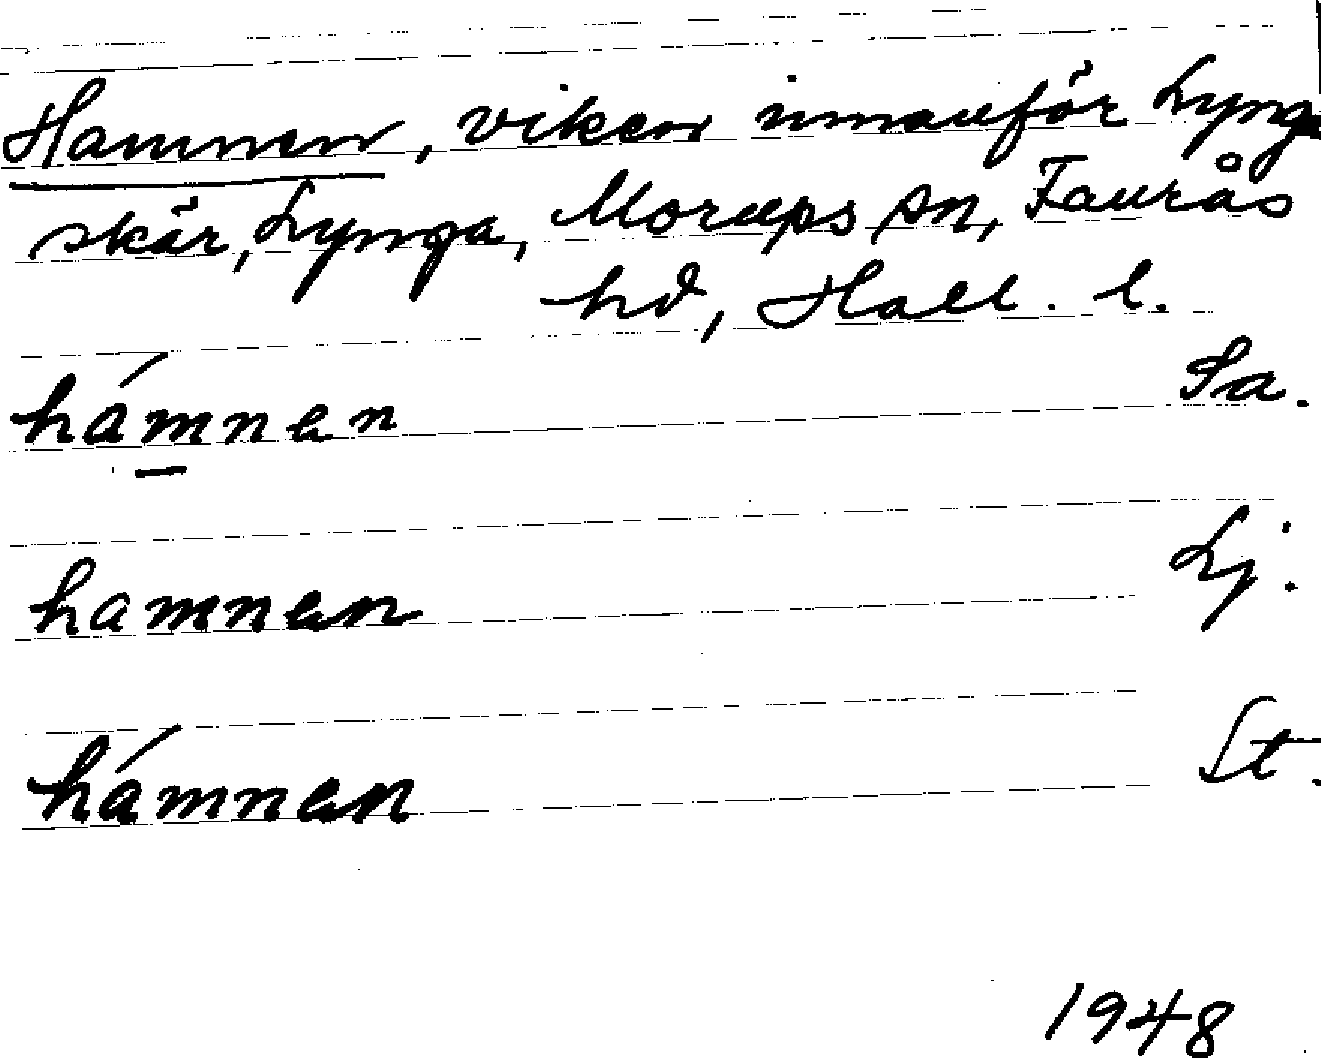 Hamnen, viken innanför Lynga
skär, Lynga, Morups sn, Faurås
hd, Hall. l.
hámnen Sa.
hamnen Lj.
hámnen St.
1948